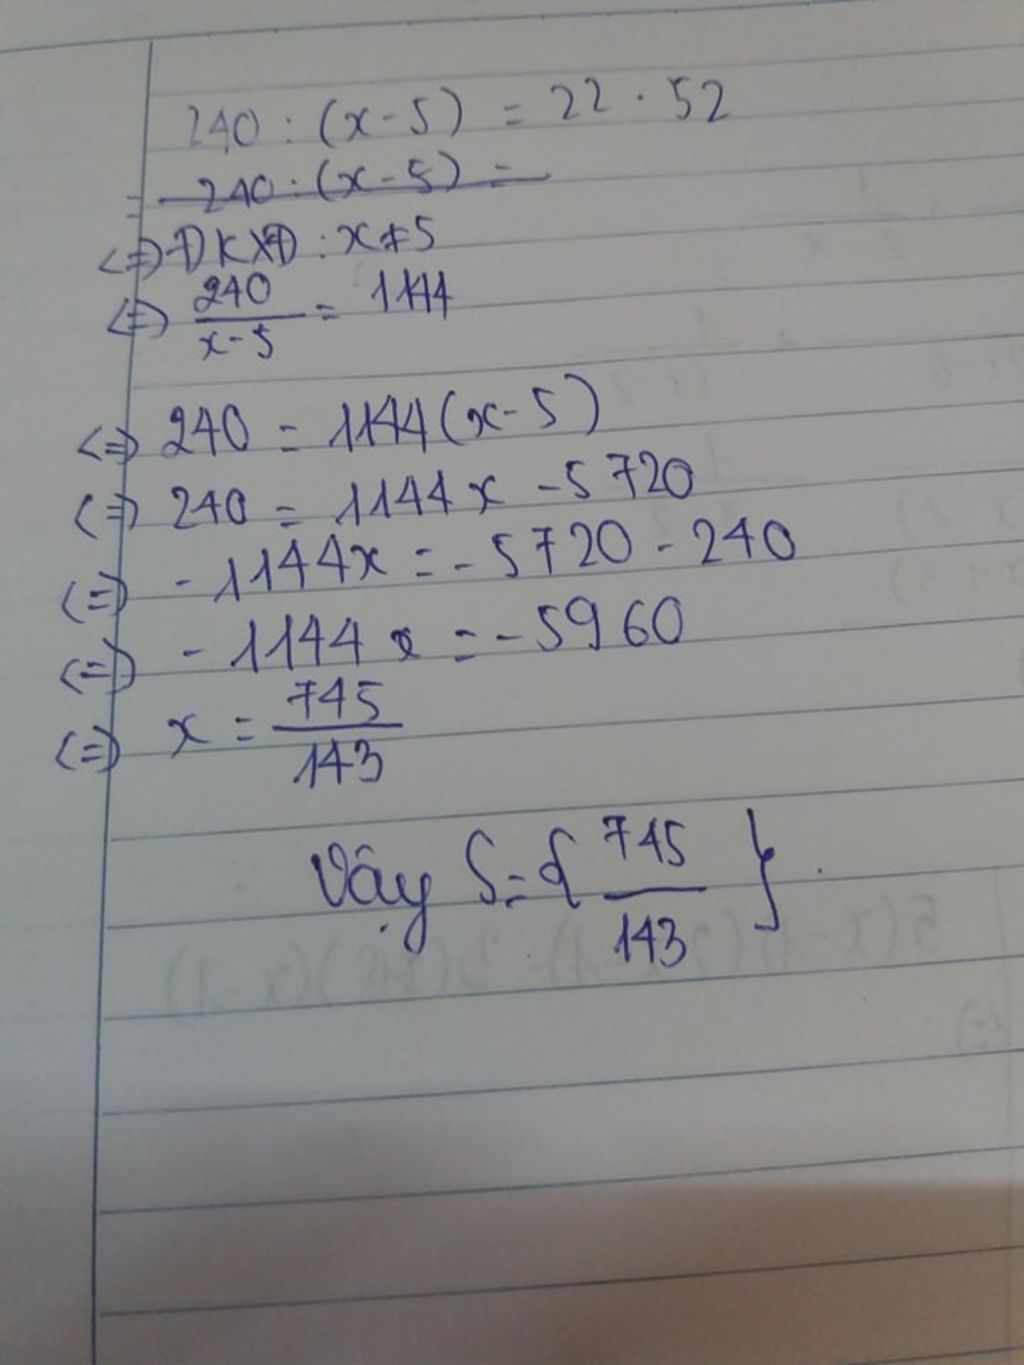 240 : (x - 5) = 22 . 52
= 240 : (x - 5) =
<=> ĐKXĐ : x ≠ 5
<=> 240/(x - 5) = 1144
<=> 240 = 1144(x - 5)
<=> 240 = 1144x - 5720
<=> - 1144x = - 5720 - 240
<=> - 1144x = - 5960
<=> x = 745/143
Vậy S = { 745/143 } .